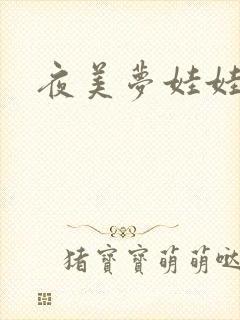 夜美夢娃娃
猪寶寶萌萌哒